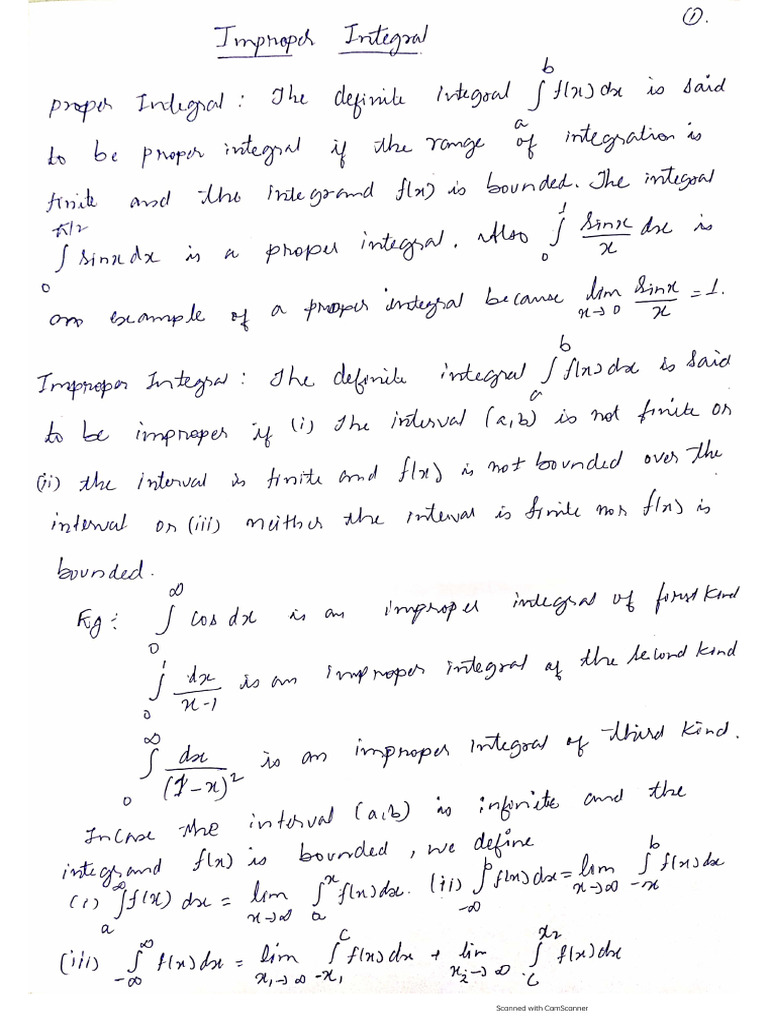 ①.
Improper Integral
Proper Integral: The definite integral ∫_a^b f(x) dx is said
to be proper integral if the range of integration is
finite and the integrand f(x) is bounded. The integral
∫_0^{π/2} sinx dx is a proper integral. Also ∫_0^1 sinx/x dx is
an example of a proper integral because lim_{x→0} sinx/x = 1.
Improper Integral: The definite integral ∫_a^b f(x) dx is said
to be improper if (i) The interval (a,b) is not finite or
(ii) the interval is finite and f(x) is not bounded over the
interval or (iii) neither the interval is finite nor f(x) is
bounded.
Eg: ∫_0^∞ cos dx is an improper integral of first kind
∫_0^1 dx/(x-1) is an improper integral of the second kind
∫_0^∞ dx/(1-x)^2 is an improper integral of third kind.
Incase the interval (a,b) is infinite and the
integrand f(x) is bounded, we define
(i) ∫_a^∞ f(x) dx = lim_{x→∞} ∫_a^x f(x) dx. (ii) ∫_{-∞}^b f(x) dx = lim_{x→∞} ∫_{-x}^b f(x) dx
(iii) ∫_{-∞}^∞ f(x) dx = lim_{x₁→∞} ∫_{-x₁}^c f(x) dx + lim_{x₂→∞} ∫_c^{x₂} f(x) dx
Scanned with CamScanner